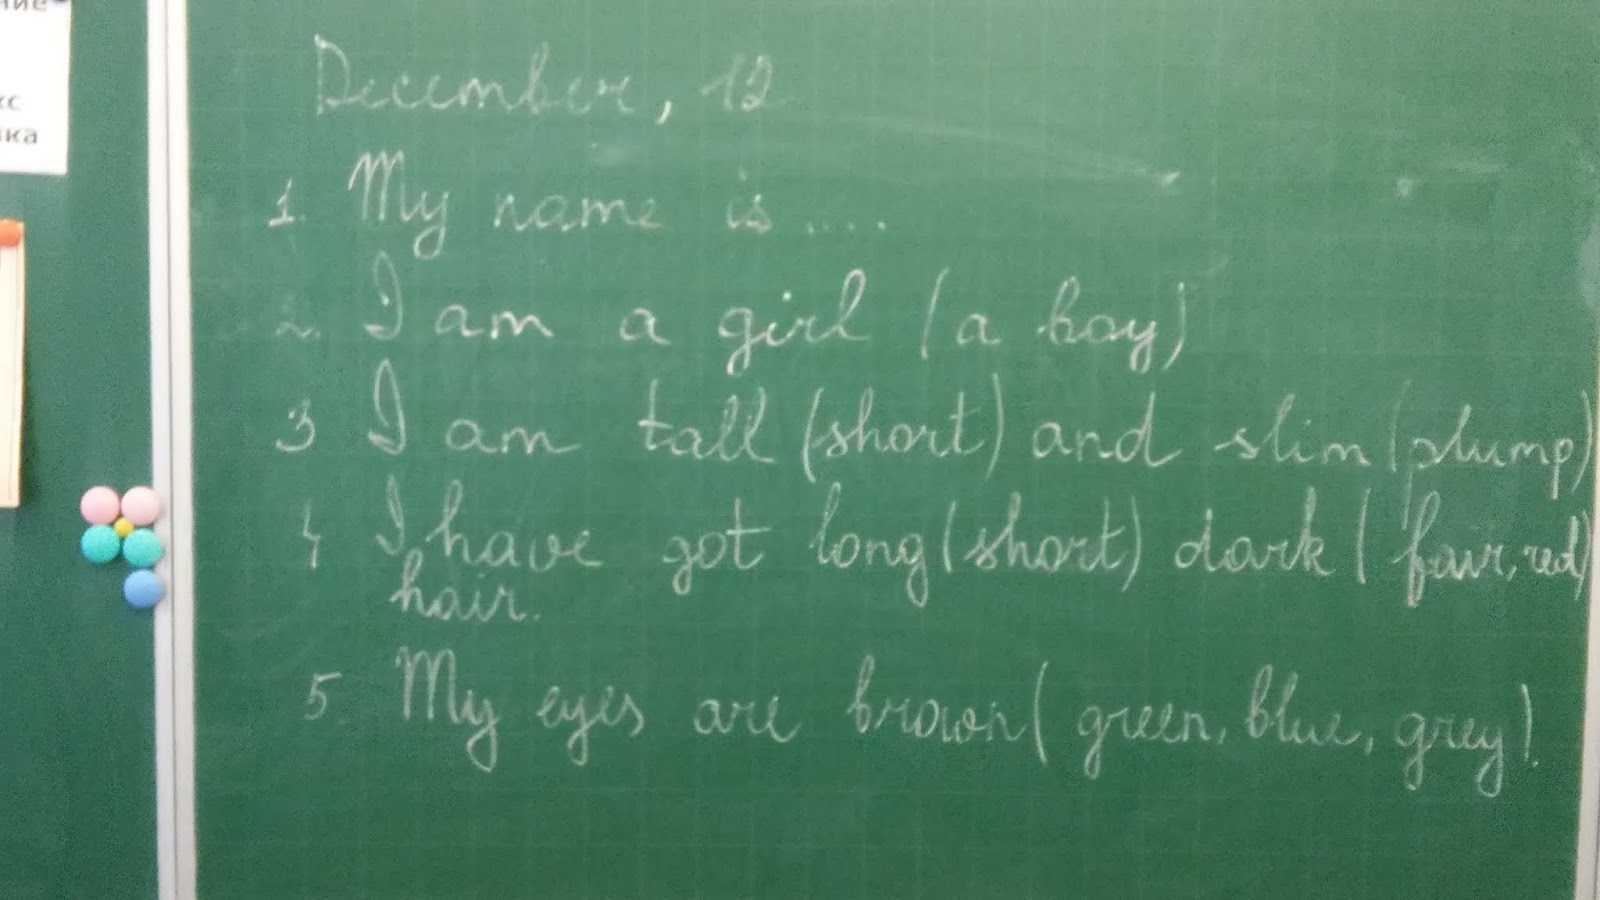 December, 12
1. My name is .....
2. I am a girl (a boy)
3 I am tall (short) and slim (plump)
4 I have got long (short) dark ( fair, red)
hair.
5. My eyes are brown ( green, blue, grey).